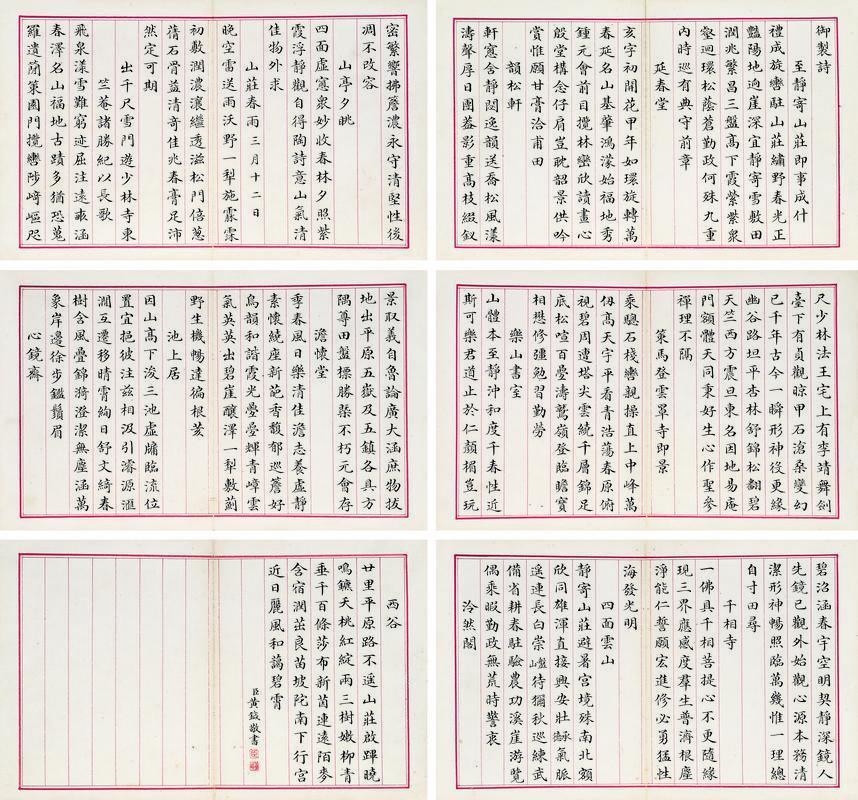 御製詩
至靜寄山莊即事成什
禮成旋轡駐山莊繡野春光正
豔陽地逈崖深宜靜寄雪敷田
潤兆繁昌三盤高下霞縈紫衆
壑迴環松蔭蒼勤政何殊九重
內時巡有典守前章
延春堂
亥字初開花甲年如環旋轉萬
春延名山基肇鴻濛始福地秀
鍾元會前目攬林巒欣讀畫心
殷堂構念仔肩豈耽韶景供吟
賞惟願甘膏洽甫田
韻松軒
軒窻含靜闊逸韻送喬松風漾
濤聲厚日團葢影重高枝綴釵
密繁響拂簷濃永守清堅性後
凋不改容
山亭夕眺
四面虛窻衆妙收春林夕照紫
霞浮靜觀自得陶詩意山氣清
佳物外求
山莊春雨三月十二日
晚空雪送雨沃野一犁施霡霂
初敷潤濃瀼繼透滋松門倍葱
蒨石骨益清奇佳兆春膏足沛
然定可期
出千尺雪門遊少林寺東
竺菴諸勝紀以長歌
飛泉漾雪難窮迹屈注遠亟涵
春澤名山福地古蹟多猶恐蒐
羅遺簡策園門攬轡陟崎嶇咫
尺少林法王宅上有李靖舞劍
臺下有貞觀晾甲石滄桑變幻
已千年古今一瞬形神後更緣
幽谷路坦平杏林舒錦松翻碧
天竺西方震旦東名因地易庵
門額體天同秉好生心作聖參
禪理不隔
策馬登雲罩寺即景
乘驄石棧轡親操直上中峰萬
仭高天宇平看青浩蕩春原俯
視碧周遭塔尖雲繞千層錦足
底松喧百疊濤鷲嶺登臨瞻寶
相懋修彊勉習勤勞
樂山書室
山體本至靜沖和度千春性近
斯可樂君道止於仁顏楣豈玩
景取義自魯論廣大涵庶物拔
地出平原五嶽及五鎮各具方
隅尊田盤標勝槩不朽元會存
澹懷堂
季春風日樂清佳澹志養虛靜
素懷繞座新葩香馥郁巡簷好
鳥韻和諧霞光疊疊輝青嶂雲
氣英英出碧崖醲澤一犁敷薊
野生機暢達徧根荄
池上居
因山高下浚三池虛牖臨流位
置宜挹彼注茲相汲引濬源滙
澗互遷移晴霄絢日舒文綺春
樹含風疊錦漪澄潔無塵涵萬
象岸邊徐步鑑鬚眉
心鏡齋
碧沼涵春宇空明契靜深鏡人
先鏡己觀外始觀心源本務清
潔形神暢照臨萬幾惟一理總
自寸田尋
千相寺
一佛具千相菩提心不更隨緣
現三界應感度羣生普濟根塵
淨能仁誓願宏進修必勇猛性
海發光明
四面雲山
靜寄山莊避暑宮境殊南北額
欣同雄渾直接興安壯盤氣脈
遥連長白崇山盤待獮秋巡練武
備省耕春駐驗農功溪崖游覽
偶乘暇勤政無荒時警衷
泠然閣
西谷
廿里平原路不遥山莊啟蹕曉
鳴鑣夭桃紅綻兩三樹嫩柳青
垂千百條莎布新茵連遠陌麥
含宿潤茁良苗坡陀南下行宮
近日麗風和藹碧霄
臣黃鉞敬書